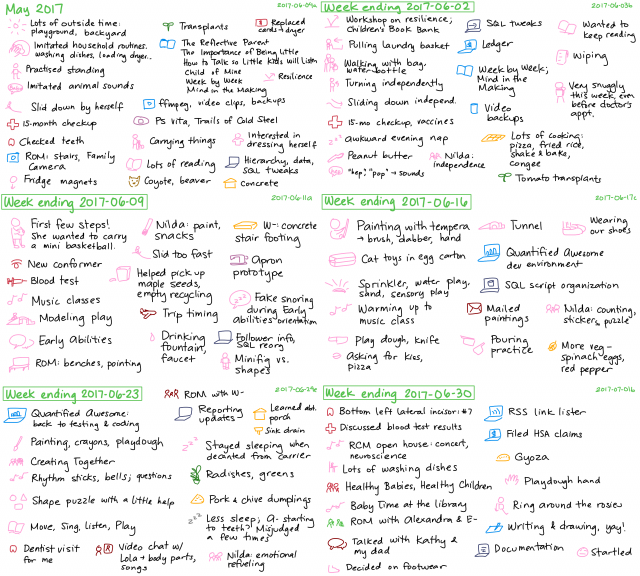 May 2017
2017-06-04a
Lots of outside time:
playground, backyard
Imitated household routines.
washing dishes, loading dryer...
Practised standing
Imitated animal sounds
Slid down by herself
15-month checkup
Checked teeth
ROM: Stairs, Family
Camera
Fridge magnets
Transplants
The Reflective Parent
The Importance of Being Little
How to Talk so Little Kids will Listen
Child of Mine
Week by Week
Mind in the Making
ffmpeg, video clips, backups
PS Vita, Trails of Cold Steel
Carrying things
Lots of reading
Coyote, beaver
Replaced
card & dryer
Resilience
Interested in
dressing herself
Hierarchy, data,
SQL tweaks
Concrete
Week ending 2017-06-02
2017-06-03b
Workshop on resilience;
Children's Book Bank
Pulling laundry basket
Walking with bag,
water bottle
Turning independently
Sliding down independ.
15-mo checkup, vaccines
awkward evening nap
Peanut butter
"hep", "pop" → sounds
Nilda:
independence
SQL tweaks
Ledger
Week by Week;
Mind in the
Making
Video
backups
Lots of cooking:
pizza, fried rice,
shake & bake,
congee
Tomato transplants
Wanted to
keep reading
Wiping
Very snuggly
this week, even
before doctor's
appt.
Week ending 2017-06-09
2017-06-11a
First few steps!
She wanted to carry
a mini basketball.
New conformer
Blood test
Music classes
Modeling play
Early Abilities
ROM: benches, pointing
Nilda: paint,
snacks
Slid too fast
Helped pick up
maple seeds,
empty recycling
Trip timing
Drinking
fountain,
faucet
W-: concrete
stair footing
Apron
prototype
Fake snoring
during Early
Abilities orientation
Follower info,
SQL reorg
Minifig vs.
shapes
Week ending 2017-06-16
2017-06-17c
Painting with tempera
→ brush, dabber, hand
Cat toys in egg carton
Sprinkler, water play,
sand, sensory play
Warming up to
music class
Play dough, knife
Asking for kiss,
pizza
Tunnel
Quantified Awesome
dev environment
SQL script organization
Mailed
paintings
Pouring
practice
Wearing
our shoes
Nilda: counting,
stickers, puzzle
More veg -
spinach eggs,
red pepper
Week ending 2017-06-23
Quantified Awesome:
back to testing & coding
Painting, crayons, playdough
Creating Together
Rhythm sticks, bells; questions
Shape puzzle with a little help
Move, Sing, Listen, Play
Dentist visit
for me
Video chat w/
Lola → body parts,
songs
ROM with W-
Reporting
updates
Stayed sleeping when
decanted from carrier
Radishes, greens
Pork & chive dumplings
Less sleep; A- starting
to teeth? Misjudged
a few times
Nilda: emotional
refueling
Learned abt.
porch
Sink drain
Week ending 2017-06-30
2017-07-01b
Bottom left lateral incisor: #7
Discussed blood test results
RCM open house: concert,
neuroscience
Lots of washing dishes
Healthy Babies, Healthy Children
Baby Time at the library
ROM with Alexandra & E-
Talked with Kathy &
my dad
Decided on footwear
RSS link lister
Filed HSA claims
Gyoza
Playdough hand
Ring around the rosies
Writing & drawing, yay!
Documentation
Startled